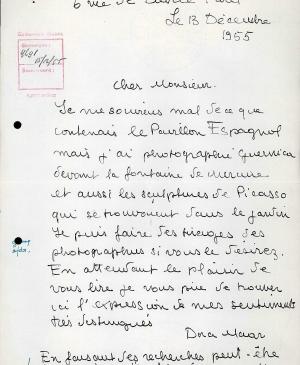 6 rue de Paris
Le 13 Décembre
1955
Cher Monsieur.
Je me souviens mal de ce que
contenait le Pavillon Espagnol
mais j'ai photographié Guernica
devant la fontaine de mercure
et aussi les sculptures de Picasso
qui se trouvaient dans le jardin
Je puis faire des tirages des
photographies si vous le désirez.
En attendant le plaisir de
vous lire je vous prie de trouver
ici l'expression de mes sentiments
très distingués
Dora Maar
En faisant des recherches peut-être